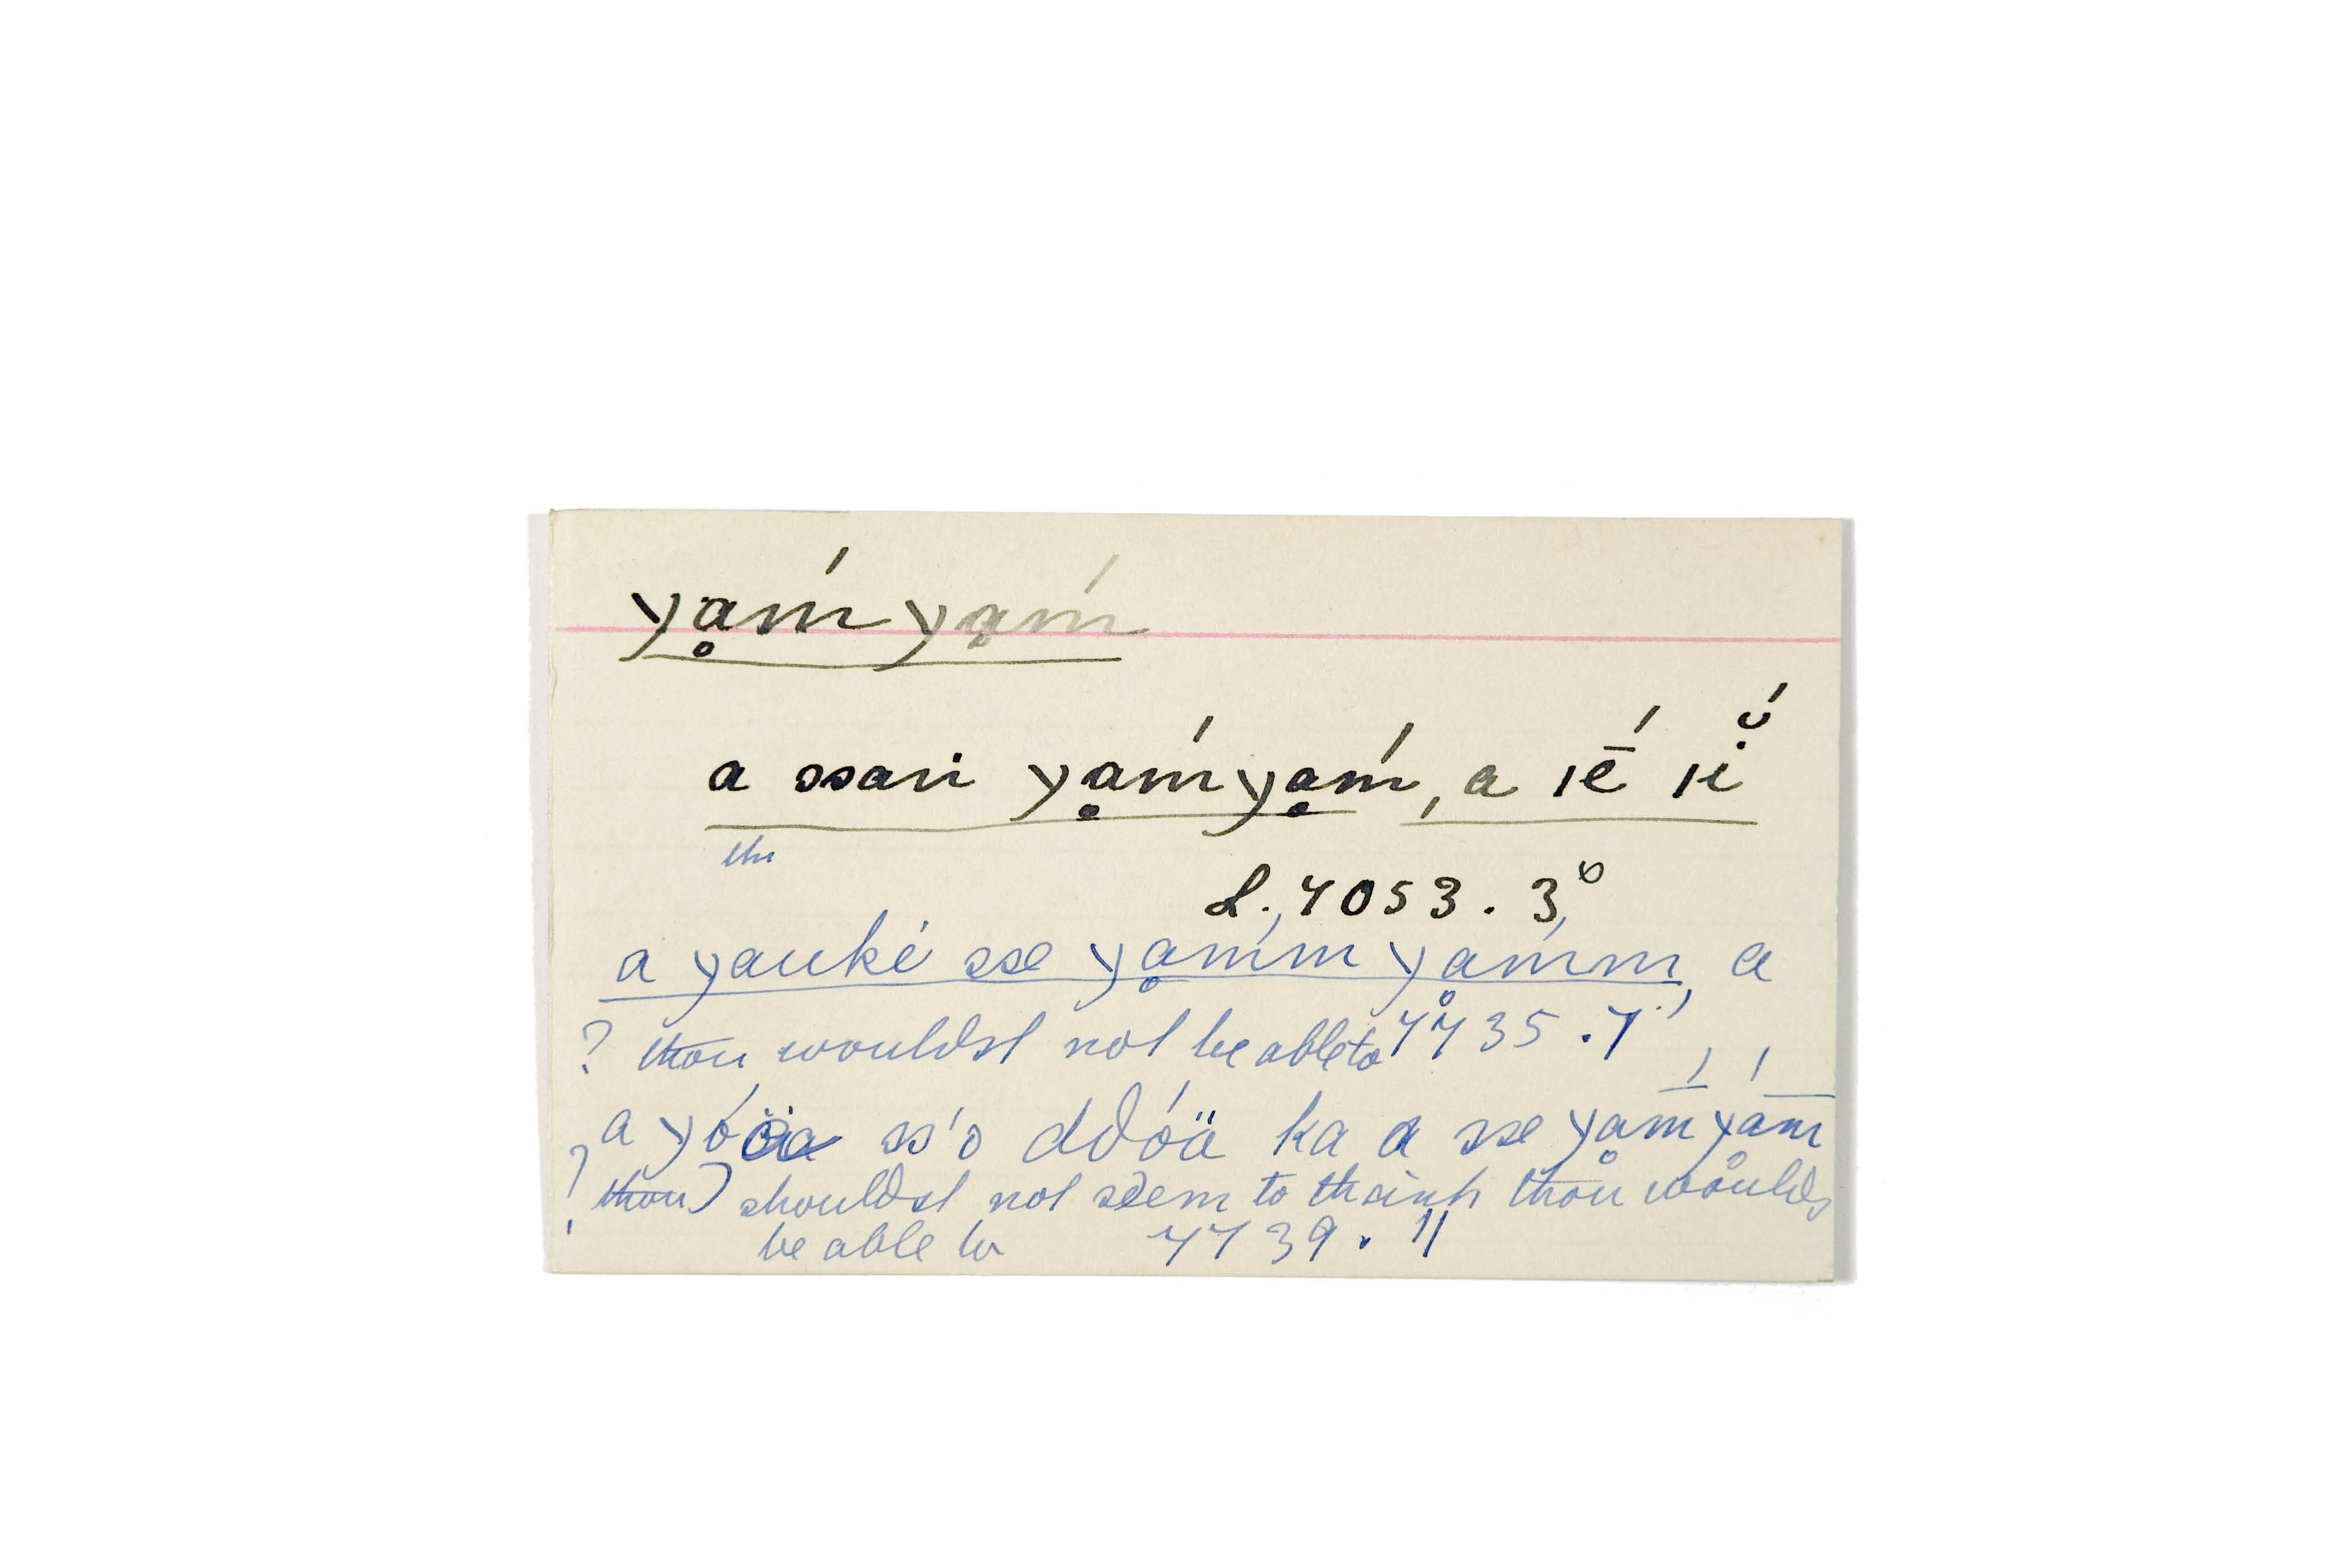 yḁḿyḁḿ
a ssari yḁḿyḁḿ, a |ḗ |ĭ́
the
L., 4053. 3,
a yauki sse yḁḿm yḁḿm, a
? thou wouldst not be able to 4435 . 7'
a yóöa ss'o ddóä ka a sse yḁ̄́m yḁ̄́m
? thou) shouldst not seem to think thou woulds
be able to 4439 . 11